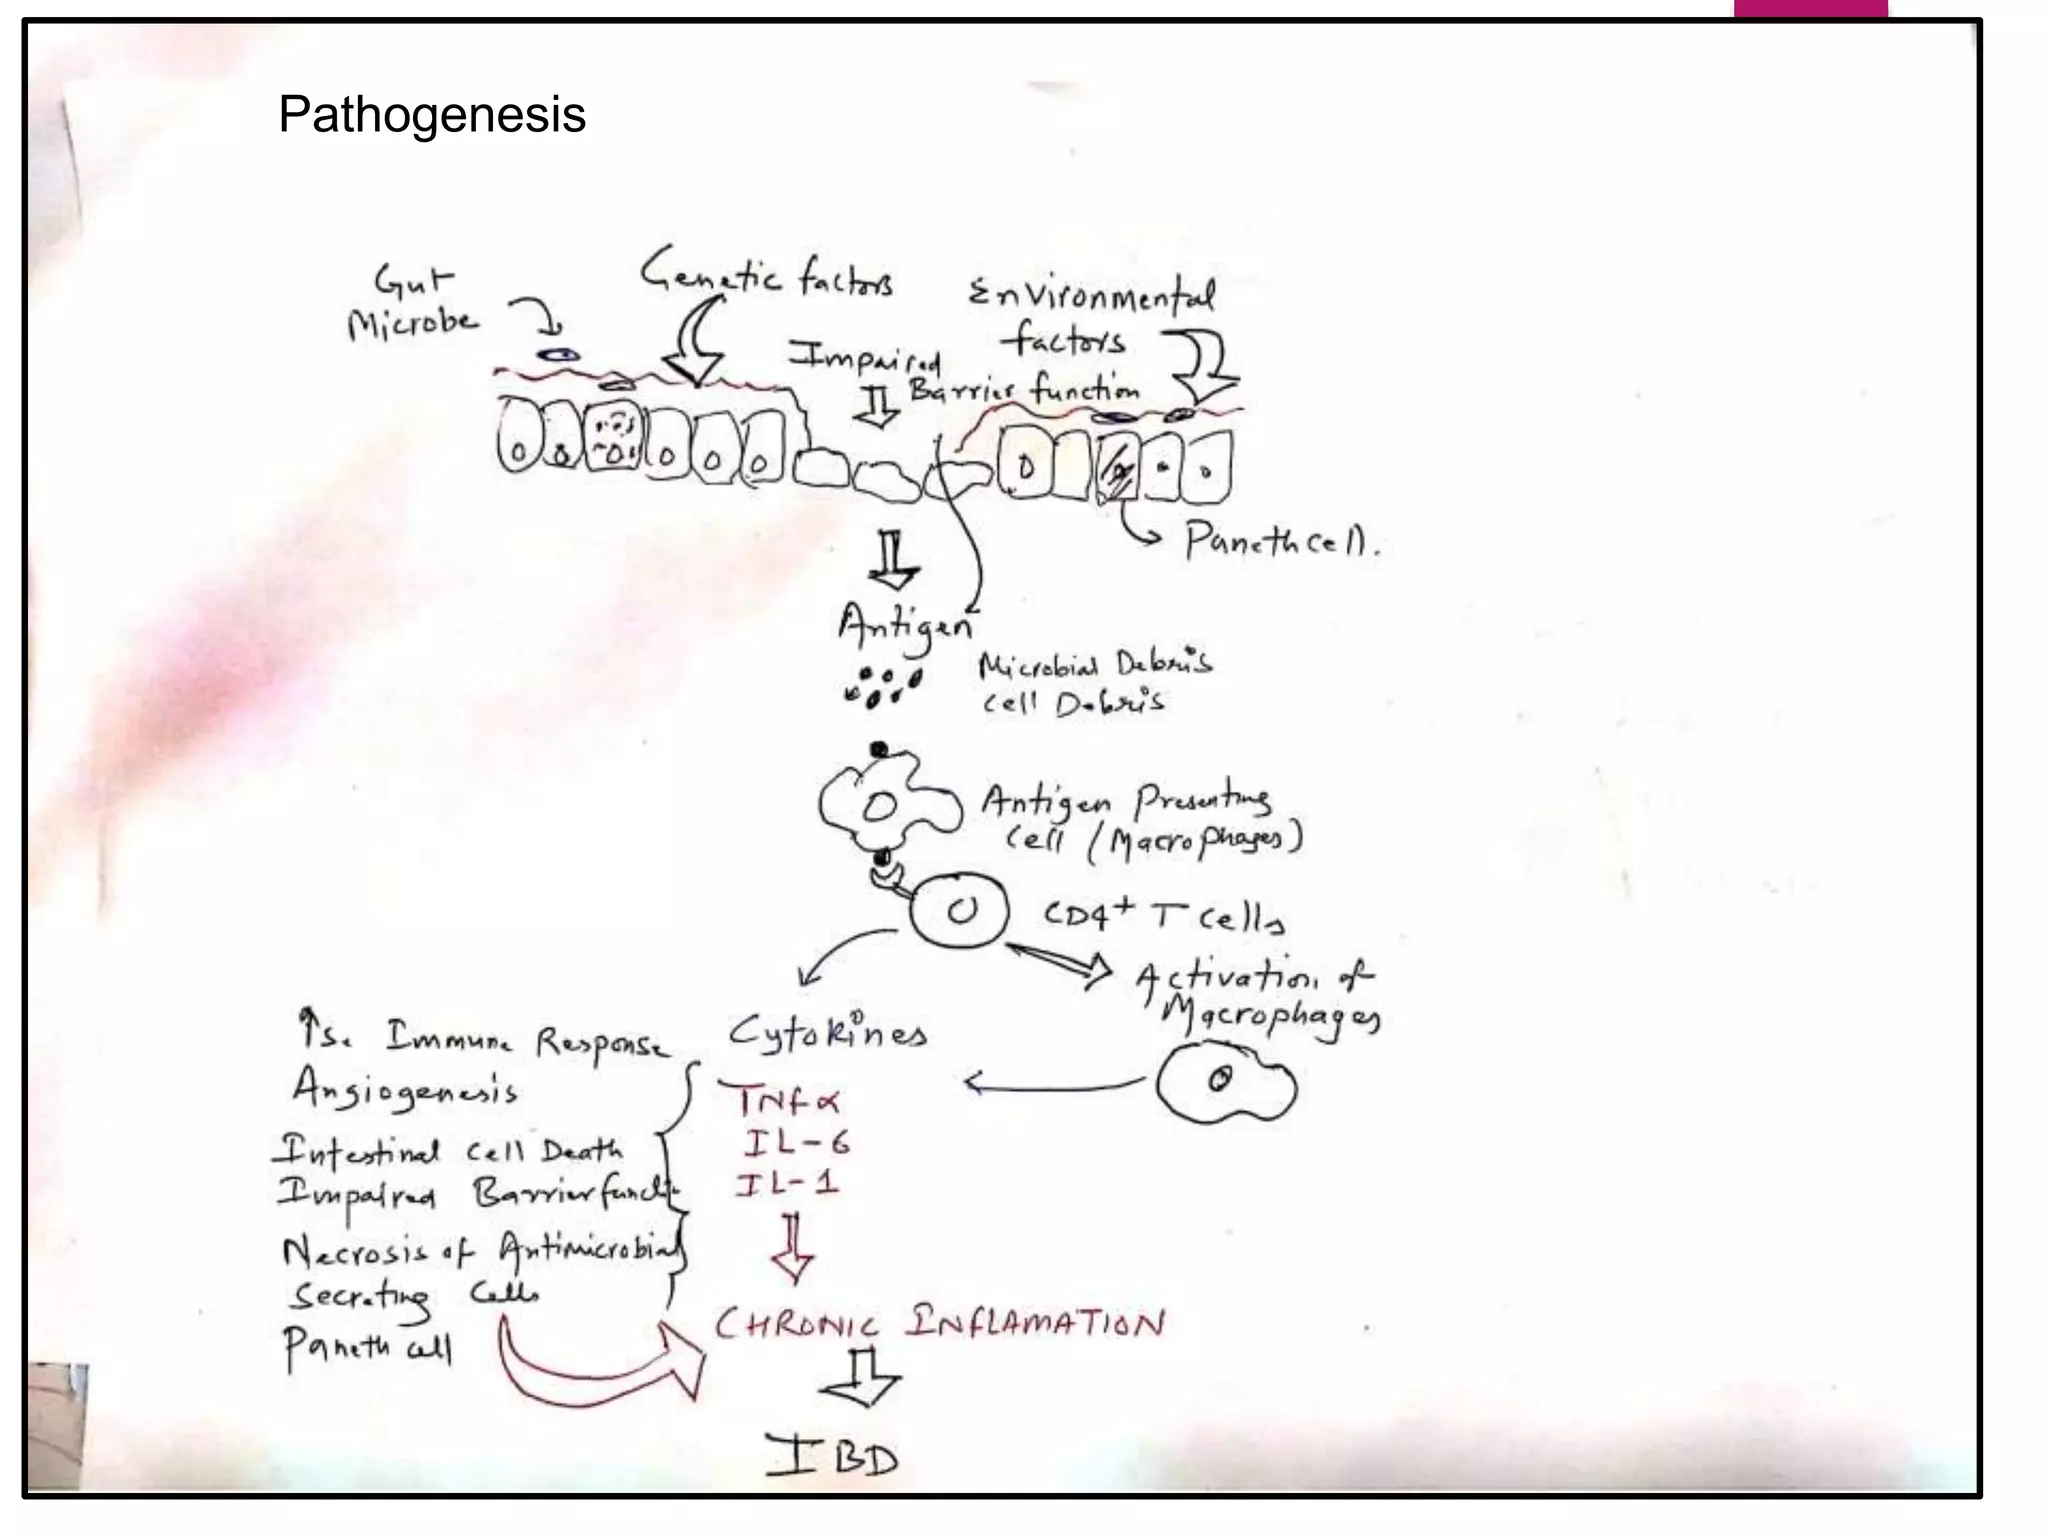 Pathogenesis
Gut
Microbe
Genetic factors
Environmental
factors
Impaired
Barrier function
Paneth cell.
Antigen
Microbial Debris
Cell Debris
Antigen Presenting
Cell / Macrophages)
CD4+ T Cells
Activation of
Macrophages
↑s. Immune Response
Angiogenesis
Intestinal Cell Death
Impaired Barrier functi
Necrosis of Antimicrobial
Secreting Cells
Paneth cell
Cytokines
TNFα
IL-6
IL-1
CHRONIC INFLAMATION
IBD